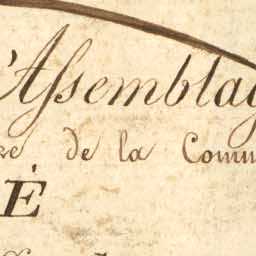 'Assemblag
re de la Comm
É